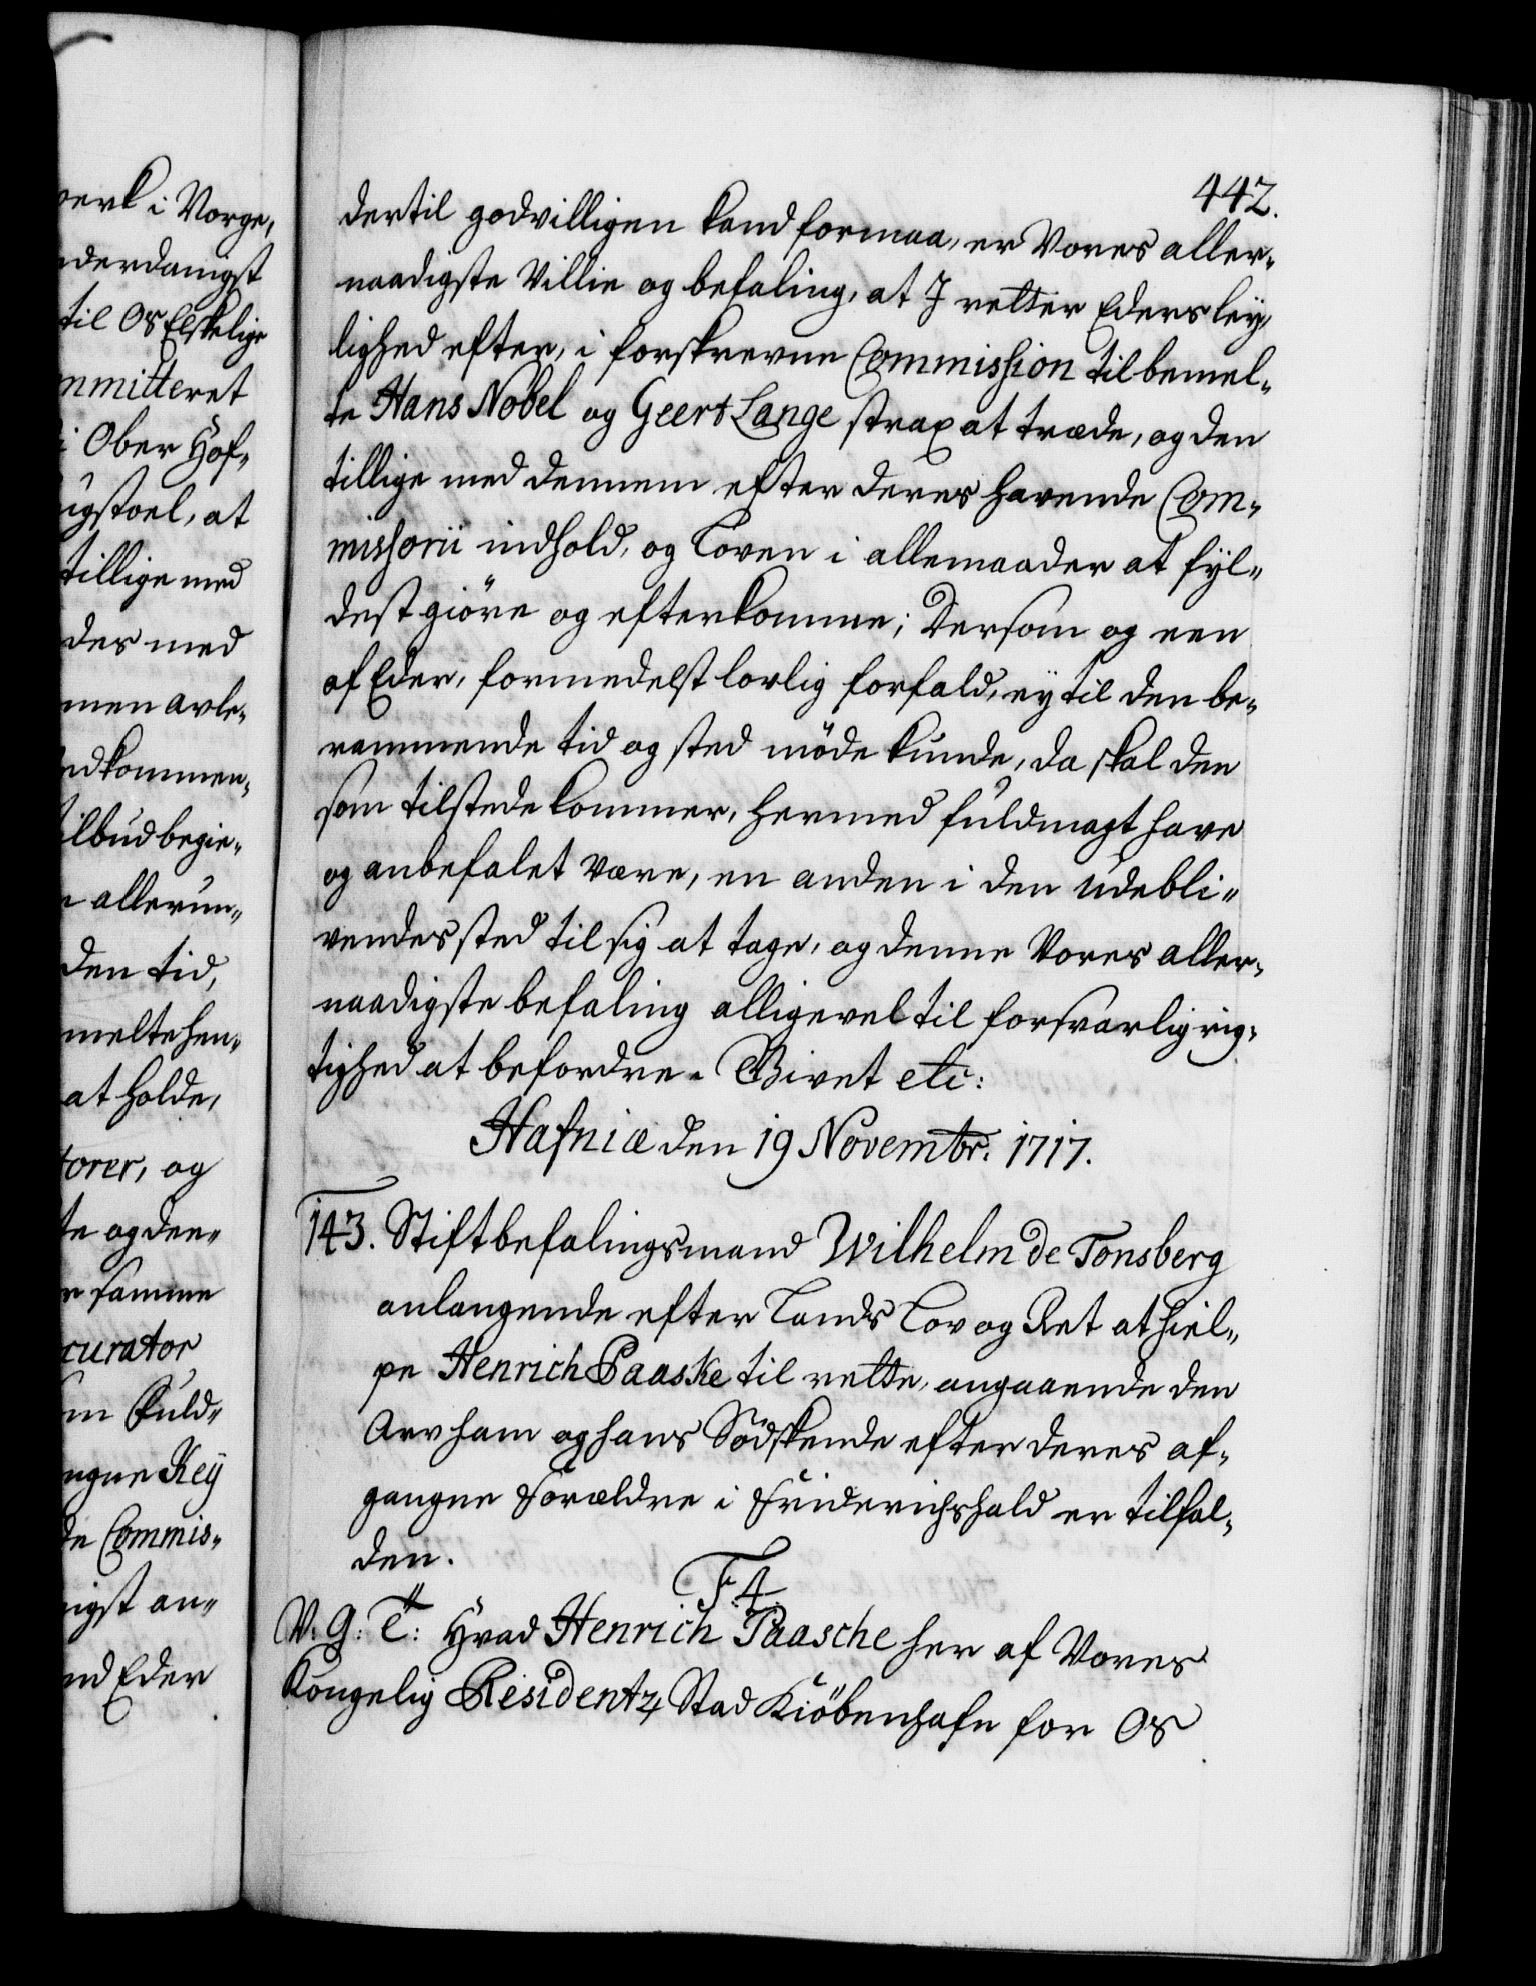 verk i Norge,
nderdanigst
til Os Elskelige
mmitteret
i Ober Hof-
igstoel, at
tillige med
des med
men avle-
ndkommen-
tilbud begie-
allerun-
den tid,
meltehen-
at holde,
torer, og
te og den-
r samme
curator
m Fuld-
ngne Kej
de Commis-
nigst an-
nd Eder
442.
dertil godvilligen kand formaa, er Vores aller-
naadigste Villie og befaling, at I retter Eders ley-
lighed efter, i forskrevne Commission til bemel-
te Hans Nobel og Geert Lange strax at træde, og den
tillige med dennem efter deres havende Com-
missorii indhold, og Loven i allemaader at fyl-
dest giöre og efterkomme; Dersom og een
af Eder, formedelst lovlig forfald, ey til den be-
rammende tid og sted möde kunde, da skal den
som tilstede kommer, hermed fuldmagt have
og anbefalet være, en anden i den udebli-
vendes sted til sig at tage, og denne Vores aller-
naadigste befaling alligevel til forsvarlig rig-
tighed at befordre. Givet etc:
Hafniæ den 19 Novembr. 1717.
143. Stiftbefalingsmand Wilhelm de Tonsberg
anlangende efter Lands Lov og Ret at hiel-
pe Henrich Paaske til rette, angaaende den
Arv ham og hans Södskende efter deres af-
gangne Forældre i Friderichshald er tilfal-
den.
F. 4.
V. G: T: Hvad Henrich Paasche her af Vores
Kongelig Residentz Stad Kiöbenhafn for Os